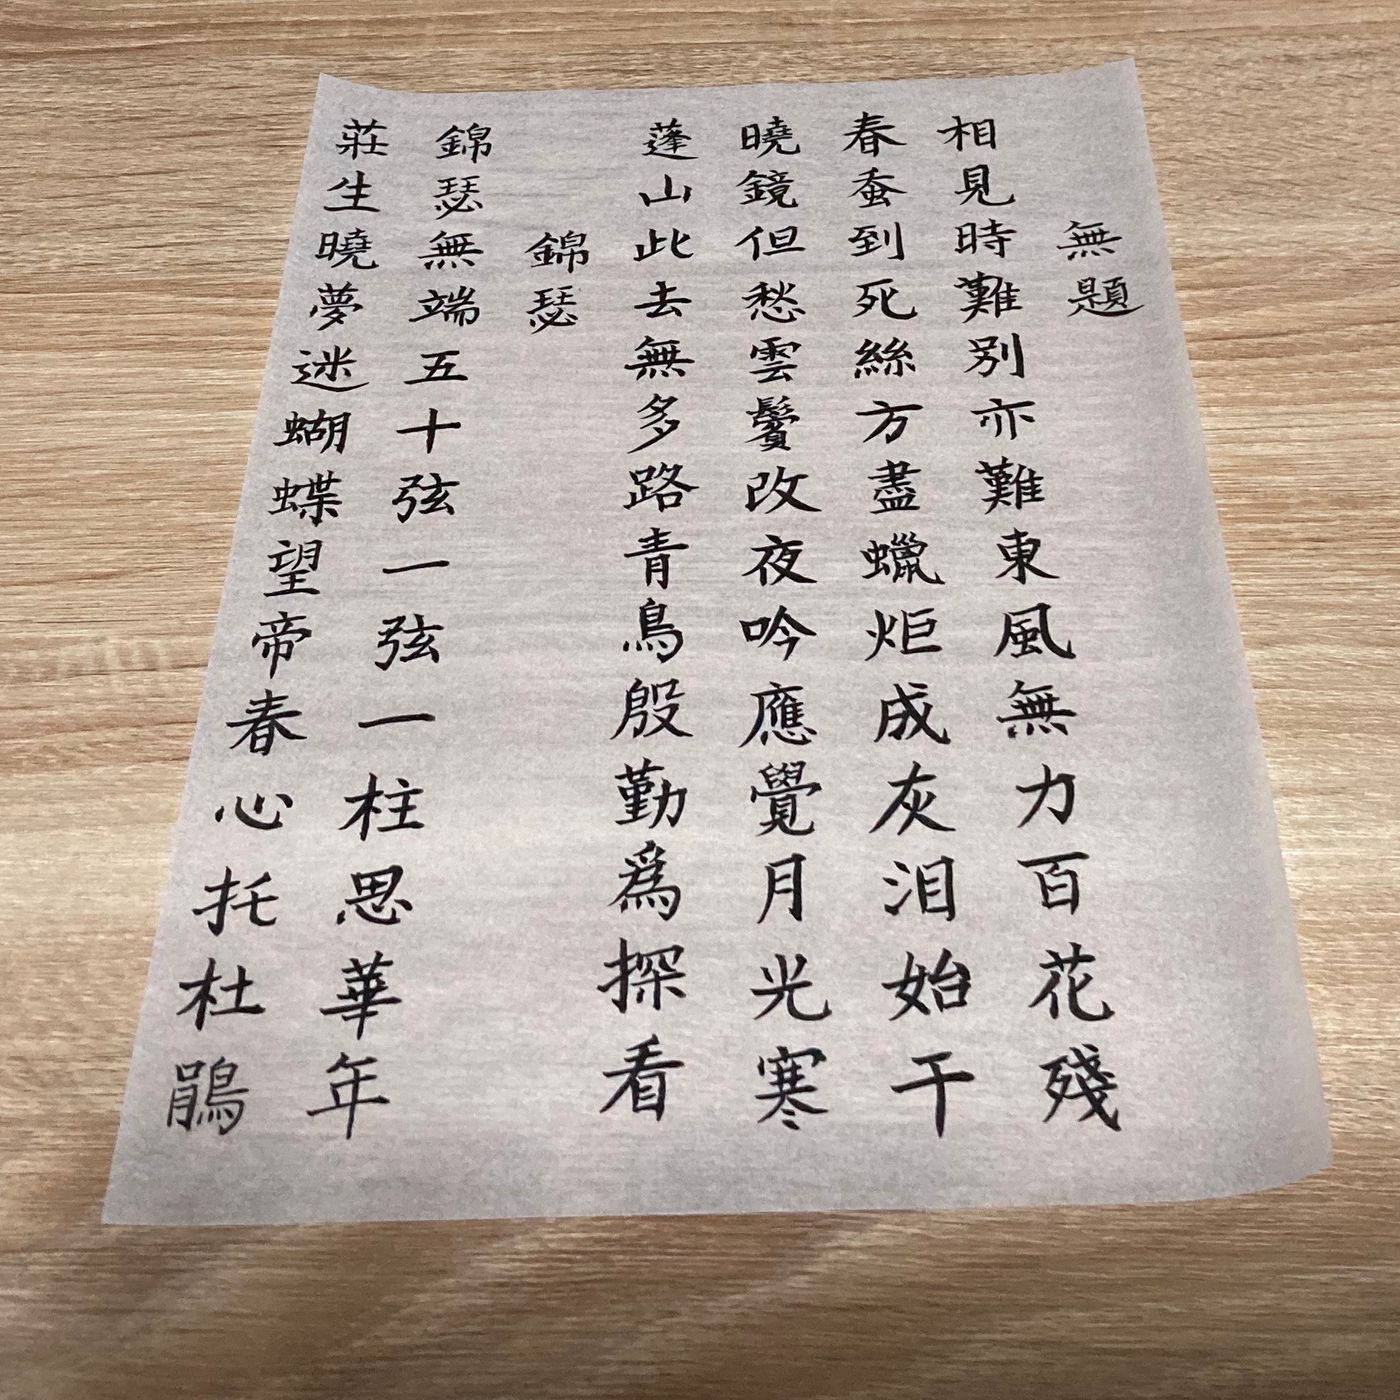 無題
相見時難別亦難東風無力百花殘
春蚕到死絲方盡蠟炬成灰泪始干
曉鏡但愁雲鬢改夜吟應覺月光寒
蓬山此去無多路青鳥殷勤爲探看
錦瑟
錦瑟無端五十弦一弦一柱思華年
莊生曉夢迷蝴蝶望帝春心托杜鵑